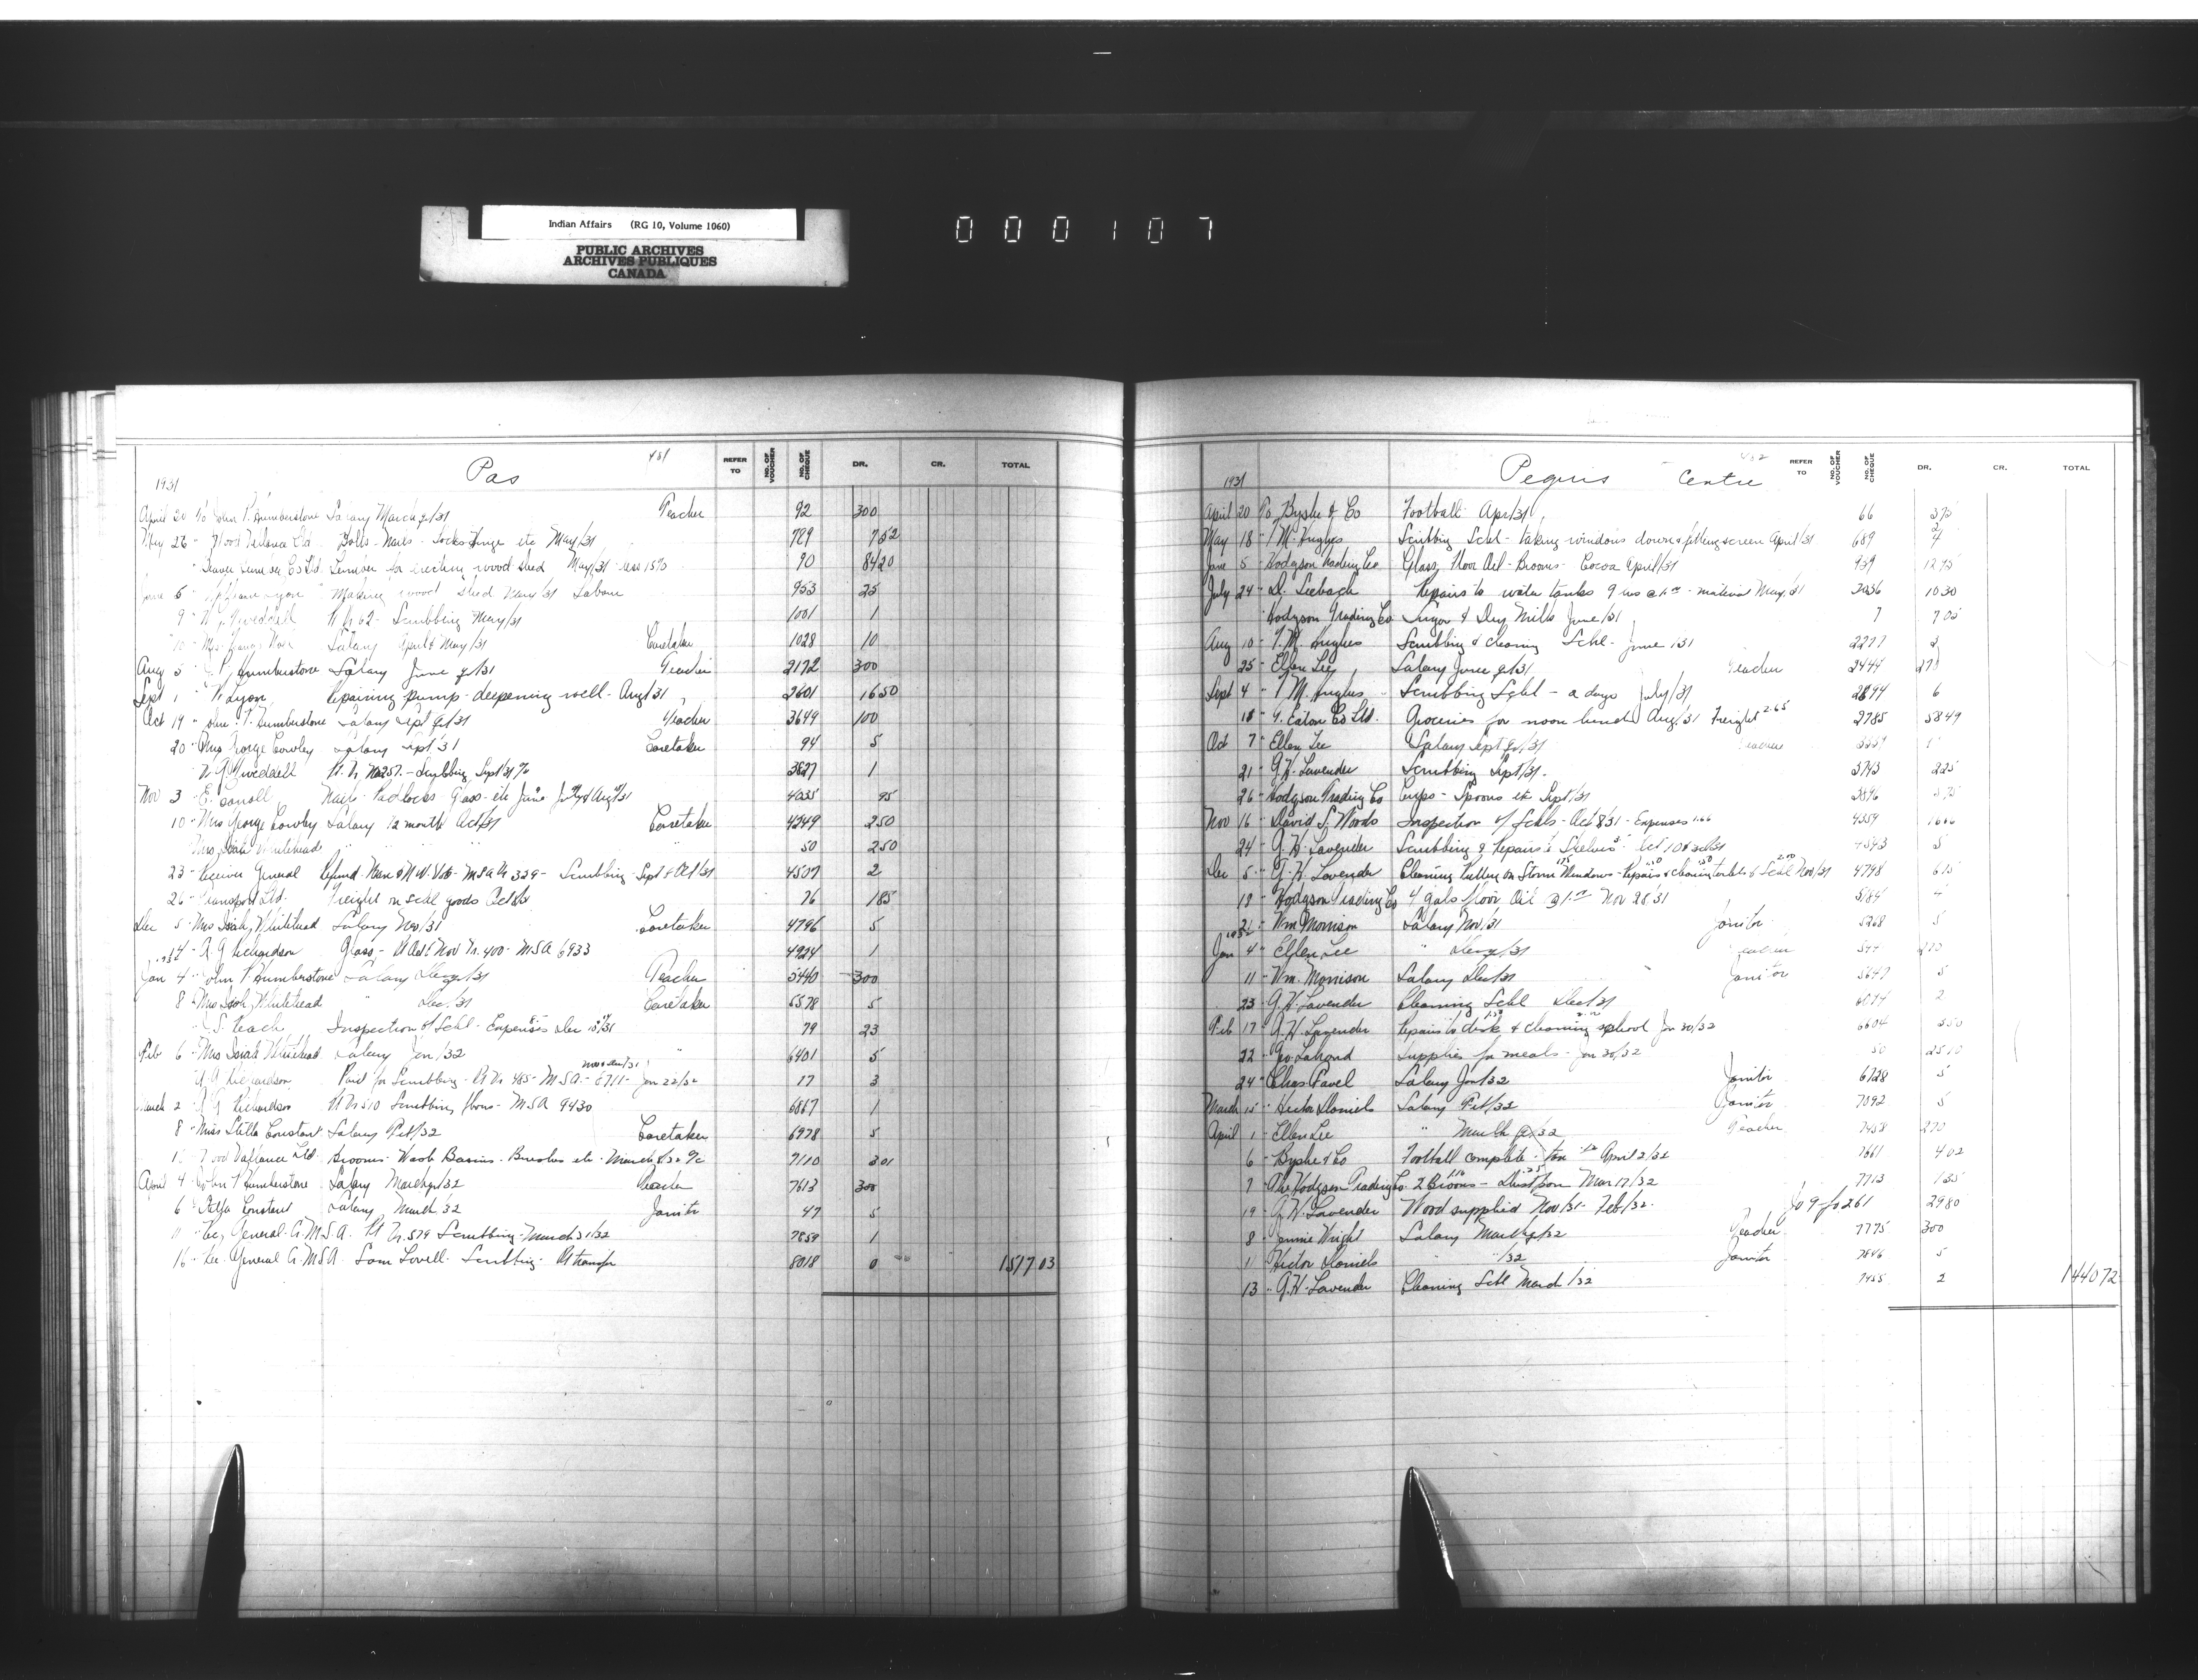 Indian Affairs (RG 10, Volume 1060)
PUBLIC ARCHIVES
ARCHIVES PUBLIQUES
CANADA
000107
Pas 431
REFER TO NO. OF VOUCHER NO. OF CHEQUE DR. CR. TOTAL
1931
April 20 To John T. Humberstone Salary March qr/31 Teacher 92 300
May 26 " Wood Vallance Ltd Bolts - Nails - Locks - Hinge etc May/31 789 752
" Lumber Co Ltd Lumber for erecting wood shed May/31 less 15% 90 8420
June 5 " Lyon Making wood shed May/31 Labour 953 25
9 " Weddell Scrubbing May/31 1001 1
10 " Mrs Salary April & May/31 Caretaker 1028 10
Aug 5 " Humberstone Salary June qr/31 Teacher 2172 300
Sept 1 " Lyon Repairing pump - deepening well - Aug/31 2601 1650
Oct 19 " John T. Humberstone Salary Sept qr/31 Teacher 3649 100
20 " Mrs George Cowley Salary Sept '31 Caretaker 94 5
" Weddell No 257 - Scrubbing Sept/31 3827 1
Nov 3 " E. Carroll Nails - Padlocks - Glass - etc June July & Aug/31 4035 95
10 " Mrs George Cowley Salary 1/2 month Oct/31 Caretaker 4249 250
" Mrs Isiah Whitehead " " 50 250
23 " Receiver General Refund MSA 339 - Scrubbing - Sept & Oct/31 4507 2
26 " Transport Ltd. Freight on schl goods Oct 76 185
Dec 5 " Mrs Isiah Whitehead Salary Nov/31 Caretaker 4796 5
14 " R G Richardson Glass - Nov 400 - MSA 6933 4924 1
1932
Jan 4 " John T. Humberstone Salary Dec qr/31 Teacher 5440 300
8 " Mrs Isiah Whitehead " Dec/31 Caretaker 5578 5
" Inspection of Schl - Expenses Dec /31 79 23
Feb 6 " Mrs Isiah Whitehead Salary Jan/32 " 6401 5
" R G Richardson Paid for Scrubbing - 485 - MSA - 8711 - Jan 22/32 17 3
March 2 " R G Richardson 510 Scrubbing floors - MSA 9430 6867 1
8 " Miss Stella Constant Salary Feb/32 Caretaker 6978 5
" Wood Vallance Ltd Brooms - Wash Basins - Brushes etc - March 7110 301
April 4 " John T Humberstone Salary March qr/32 Teacher 7613 300
6 " Stella Constant Salary March '32 Janitor 47 5
11 " Rec General - G.M.S.A. 579 Scrubbing - March 31/32 7859 1
16 " Rec General G.M.S.A. Sam Lovell - Scrubbing - 8018 0 151703
Peguis Centre 432
REFER TO NO. OF VOUCHER NO. OF CHEQUE DR. CR. TOTAL
1931
April 20 To Byshe & Co Football Apr/31 66 375
May 18 " T M. Hughes Scrubbing Schl - taking windows down & putting screen April/31 689
June 5 " Hodgson Trading Co Glass, Floor Oil - Brooms - Cocoa April/31 939 1295
July 24 " D. Seebach Repairs to water tanks 9 hrs - material May/31 1030
" Hodgson Trading Co Sugar & Dry Milk June/31 7 705
Aug 10 " T. M. Hughes Scrubbing & cleaning Schl - June /31 2277 2
25 " Ellen Lee Salary June qr/31 Teacher 2444 275
Sept 4 " T M. Hughes Scrubbing Schl - 2 days July/31 2694 6
18 " T. Eaton Co Ltd. Groceries for noon lunch Aug/31 Freight 2.65 2785 5849
Oct 7 " Ellen Lee Salary Sept qr/31 Teacher
21 " G.H. Lavender Scrubbing Sept/31. 3743 225
26 " Hodgson Trading Co Cups - Spoons etc Sept/31 3896 375
Nov 16 " David S. Woods Inspection of Schls - Oct 8/31 - Expenses 1.66 4359 166
24 " G. H. Lavender Scrubbing & Repairs to Shelves 4593 5
Dec 5 " G. H. Lavender Cleaning Putting on Storm Windows - Repairs & cleaning toilets & Schl Nov/31 4798 615
18 " Hodgson Trading Co 4 gals floor Oil Nov 28/31 5184 4
21 " Wm Morrison Salary Nov/31 Janitor 5268 5
1932
Jan 4 " Ellen Lee " Dec qr/31 Teacher
11 " Wm. Morrison Salary Dec/31 Janitor 5647 5
23 " G. H. Lavender Cleaning Schl Dec/31 2
Feb 17 " G. H. Lavender Repairs to desk & cleaning school Jan 30/32 6604 350
22 " Geo Lahond Supplies for meals - Jan 30/32 50 2510
24 " Chas Favel Salary Jan/32 Janitor 6728 5
March 15 " Hector Daniels Salary Feb/32 Janitor 7092 5
April 1 " Ellen Lee " March qr/32 Teacher 7458 270
6 " Byshe & Co Football complete - tax April 2/32 7661 402
7 " The Hodgson Trading Co. 2 Brooms - Dustpan Mar 17/32 7713 135
19 " G. H. Lavender Wood supplied Nov/31 - Feb/32. Jo 9 - fo 261 2980
8 " Jennie Wright Salary March qr/32 Teacher 7775 300
11 " Hector Daniels " "/32 Janitor 7846 5
13 " G. H. Lavender Cleaning Schl March /32 7955 2 144072